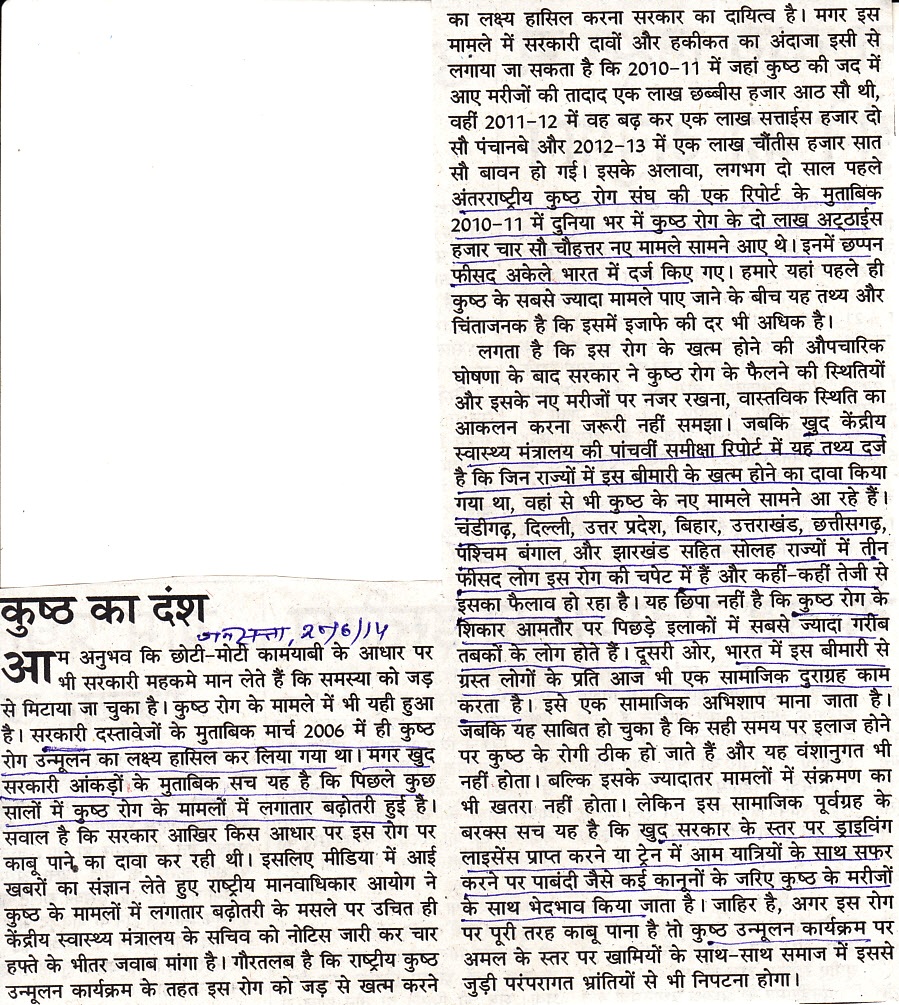 कुष्ठ का दंश
जनसत्ता, 27/6/14
आम अनुभव कि छोटी-मोटी कामयाबी के आधार पर
भी सरकारी महकमे मान लेते हैं कि समस्या को जड़
से मिटाया जा चुका है। कुष्ठ रोग के मामले में भी यही हुआ
है। सरकारी दस्तावेजों के मुताबिक मार्च 2006 में ही कुष्ठ
रोग उन्मूलन का लक्ष्य हासिल कर लिया गया था। मगर खुद
सरकारी आंकड़ों के मुताबिक सच यह है कि पिछले कुछ
सालों में कुष्ठ रोग के मामलों में लगातार बढ़ोतरी हुई है।
सवाल है कि सरकार आखिर किस आधार पर इस रोग पर
काबू पाने का दावा कर रही थी। इसलिए मीडिया में आई
खबरों का संज्ञान लेते हुए राष्ट्रीय मानवाधिकार आयोग ने
कुष्ठ के मामलों में लगातार बढ़ोतरी के मसले पर उचित ही
केंद्रीय स्वास्थ्य मंत्रालय के सचिव को नोटिस जारी कर चार
हफ्ते के भीतर जवाब मांगा है। गौरतलब है कि राष्ट्रीय कुष्ठ
उन्मूलन कार्यक्रम के तहत इस रोग को जड़ से खत्म करने
का लक्ष्य हासिल करना सरकार का दायित्व है। मगर इस
मामले में सरकारी दावों और हकीकत का अंदाजा इसी से
लगाया जा सकता है कि 2010-11 में जहां कुष्ठ की जद में
आए मरीजों की तादाद एक लाख छब्बीस हजार आठ सौ थी,
वहीं 2011-12 में वह बढ़ कर एक लाख सत्ताईस हजार दो
सौ पंचानबे और 2012-13 में एक लाख चौंतीस हजार सात
सौ बावन हो गई। इसके अलावा, लगभग दो साल पहले
अंतरराष्ट्रीय कुष्ठ रोग संघ की एक रिपोर्ट के मुताबिक
2010-11 में दुनिया भर में कुष्ठ रोग के दो लाख अट्ठाईस
हजार चार सौ चौहत्तर नए मामले सामने आए थे। इनमें छप्पन
फीसद अकेले भारत में दर्ज किए गए। हमारे यहां पहले ही
कुष्ठ के सबसे ज्यादा मामले पाए जाने के बीच यह तथ्य और
चिंताजनक है कि इसमें इजाफे की दर भी अधिक है।
लगता है कि इस रोग के खत्म होने की औपचारिक
घोषणा के बाद सरकार ने कुष्ठ रोग के फैलने की स्थितियों
और इसके नए मरीजों पर नजर रखना, वास्तविक स्थिति का
आकलन करना जरूरी नहीं समझा। जबकि खुद केंद्रीय
स्वास्थ्य मंत्रालय की पांचवीं समीक्षा रिपोर्ट में यह तथ्य दर्ज
है कि जिन राज्यों में इस बीमारी के खत्म होने का दावा किया
गया था, वहां से भी कुष्ठ के नए मामले सामने आ रहे हैं।
चंडीगढ़, दिल्ली, उत्तर प्रदेश, बिहार, उत्तराखंड, छत्तीसगढ़,
पश्चिम बंगाल और झारखंड सहित सोलह राज्यों में तीन
फीसद लोग इस रोग की चपेट में हैं और कहीं-कहीं तेजी से
इसका फैलाव हो रहा है। यह छिपा नहीं है कि कुष्ठ रोग के
शिकार आमतौर पर पिछड़े इलाकों में सबसे ज्यादा गरीब
तबकों के लोग होते हैं। दूसरी ओर, भारत में इस बीमारी से
ग्रस्त लोगों के प्रति आज भी एक सामाजिक दुराग्रह काम
करता है। इसे एक सामाजिक अभिशाप माना जाता है।
जबकि यह साबित हो चुका है कि सही समय पर इलाज होने
पर कुष्ठ के रोगी ठीक हो जाते हैं और यह वंशानुगत भी
नहीं होता। बल्कि इसके ज्यादातर मामलों में संक्रमण का
भी खतरा नहीं होता। लेकिन इस सामाजिक पूर्वग्रह के
बरक्स सच यह है कि खुद सरकार के स्तर पर ड्राइविंग
लाइसेंस प्राप्त करने या ट्रेन में आम यात्रियों के साथ सफर
करने पर पाबंदी जैसे कई कानूनों के जरिए कुष्ठ के मरीजों
के साथ भेदभाव किया जाता है। जाहिर है, अगर इस रोग
पर पूरी तरह काबू पाना है तो कुष्ठ उन्मूलन कार्यक्रम पर
अमल के स्तर पर खामियों के साथ-साथ समाज में इससे
जुड़ी परंपरागत भ्रांतियों से भी निपटना होगा।